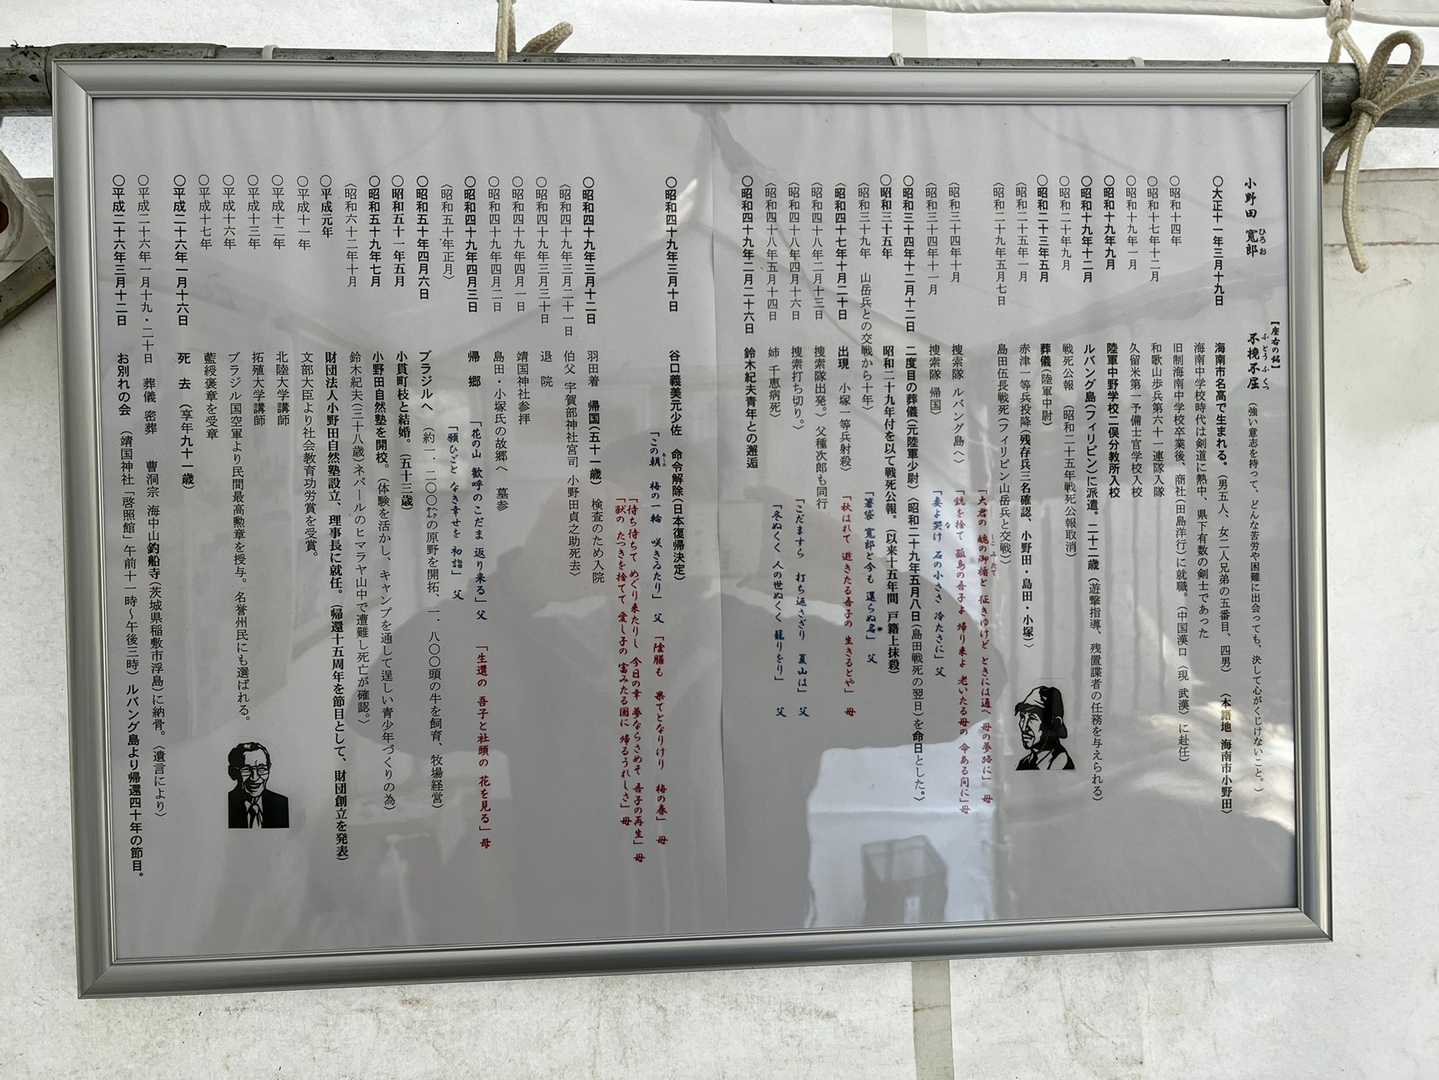 小野田 寛郎 ひろお
【座右の銘】
不撓不屈 ふとうふくつ (強い意志を持って、どんな苦労や困難に出会っても、決して心がくじけないこと。)
〇大正十一年三月十九日 海南市名高で生まれる。(男五人、女二人兄弟の五番目、四男) (本籍地 海南市小野田)
海南中学校時代は剣道に熱中、県下有数の剣士であった
〇昭和十四年 旧制海南中学校卒業後、商社(田島洋行)に就職。(中国漢口(現 武漢)に赴任)
〇昭和十七年十二月 和歌山歩兵第六十一連隊入隊
〇昭和十九年一月 久留米第一予備士官学校入校
〇昭和十九年九月 陸軍中野学校二俣分教所入校
〇昭和十九年十二月 ルバング島(フィリピン)に派遣。二十二歳(遊撃指導、残置諜者の任務を与えられる)
〇昭和二十年九月 戦死公報 (昭和二十五年戦死公報取消)
〇昭和二十三年五月 葬儀(陸軍中尉)
〇昭和二十五年一月 赤津一等兵投降(残存兵三名確認、小野田・島田・小塚)
〇昭和二十九年五月七日 島田伍長戦死(フィリピン山岳兵と交戦)
「大君の 醜の御楯と 征きゆけど ときには通へ 母の夢路に」母
「銃を捨て 孤島の吾子よ 帰り来よ 老いたる母の 命ある間に」母
(昭和三十四年十月 捜索隊 ルバング島へ)
「妻よ哭け 石の小ささ 冷たさに」父
〇昭和三十四年十一月 捜索隊 帰国)
〇昭和三十四年十二月十二日 二度目の葬儀(元陸軍少尉)(昭和二十九年五月八日(島田戦死の翌日)を命日とした。)
〇昭和三十五年 昭和二十九年付を以て戦死公報。(以来十五年間 戸籍上抹殺)
(昭和三十九年 山岳兵との交戦から十年)
「箸袋 寛郎と今も 還らぬ名」父
〇昭和四十七年十月二十日 出現 小塚一等兵射殺)
「秋はれて 逝きたる吾子の 生きるとや」母
〇昭和四十八年二月十三日 捜索隊出発。)父種次郎も同行
(昭和四十八年四月十六日 捜索打ち切り。)
「こだますら 打ち返さざり 夏山は」父
(昭和四十八年五月十四日 姉 千恵病死)
「冬ぬくく 人の世ぬくく 籠りをり」父
〇昭和四十九年二月二十六日 鈴木紀夫青年との邂逅
〇昭和四十九年三月十日 谷口義美元少佐 命令解除(日本復帰決定)
「この朝 梅の一輪 咲きゐたり」父 「陰膳も 果てとなりけり 梅の春」母
「待ち待ちて めぐり来たりし 今日の幸 夢ならさめそ 吾子の再生」母
「獣の たつきを捨てて 愛し子の 富みたる国に 帰るうれしさ」母
〇昭和四十九年三月十二日 羽田着 帰国(五十一歳) 検査のため入院
(昭和四十九年三月二十一日 伯父 宇賀部神社宮司 小野田貞之助死去)
〇昭和四十九年三月三十日 退 院
〇昭和四十九年四月一日 靖国神社参拝
〇昭和四十九年四月二日 島田・小塚氏の故郷へ 墓参
〇昭和四十九年四月三日 帰 郷 「花の山 歓呼のこだま 返り来る」父 「生還の 吾子と社頭の 花を見る」母
(昭和五十年正月) 「願ひごと なき幸せを 初詣」父
〇昭和五十年四月六日 ブラジルへ (約一.二〇〇㌶の原野を開拓、一.八〇〇頭の牛を飼育、牧場経営)
〇昭和五十一年五月 小貫町枝と結婚。(五十三歳)
〇昭和五十九年七月 小野田自然塾を開校。(体験を活かし、キャンプを通して逞しい青少年づくりの為)
(昭和六十二年十月 鈴木紀夫(三十八歳)ネパールのヒマラヤ山中で遭難し死亡が確認。)
〇平成元年 財団法人小野田自然塾設立、理事長に就任。(帰還十五周年を節目として、財団創立を発表)
〇平成十一年 文部大臣より社会教育功労賞を受賞。
〇平成十二年 北陸大学講師
〇平成十三年 拓殖大学講師
〇平成十六年 ブラジル国空軍より民間最高勲章を授与。名誉州民にも選ばれる。
〇平成十七年 藍綬褒章を受章
〇平成二十六年一月十六日 死 去(享年九十一歳)
〇平成二十六年一月十九・二十日 葬儀 密葬 曹洞宗 海中山釣船寺(茨城県稲敷市浮島)に納骨。(遺言により)
〇平成二十六年三月十二日 お別れの会 (靖国神社「啓照館」午前十一時〜午後三時) ルバング島より帰還四十年の節目。